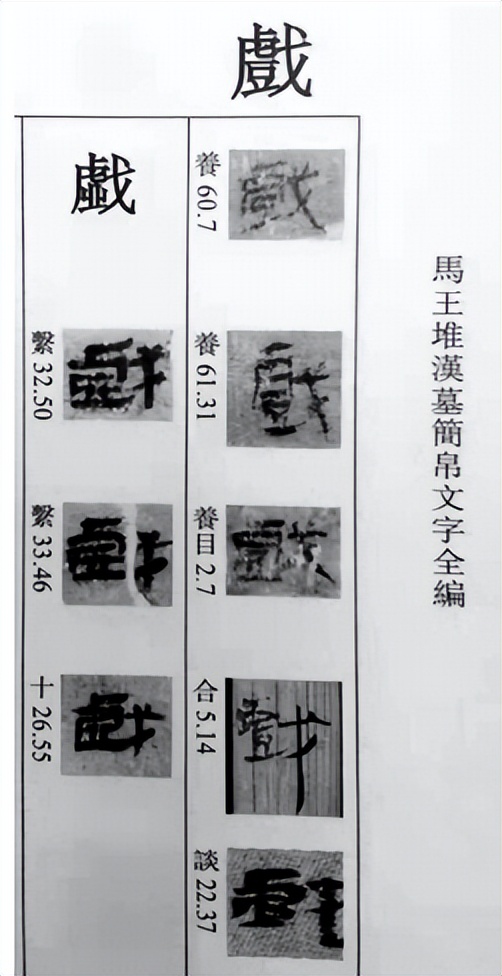 馬王堆漢墓簡帛文字全編
戲
養 60.7
養 61.31
養目 2.7
合 5.14
談 22.37
戯
繫 32.50
繫 33.46
十 26.55